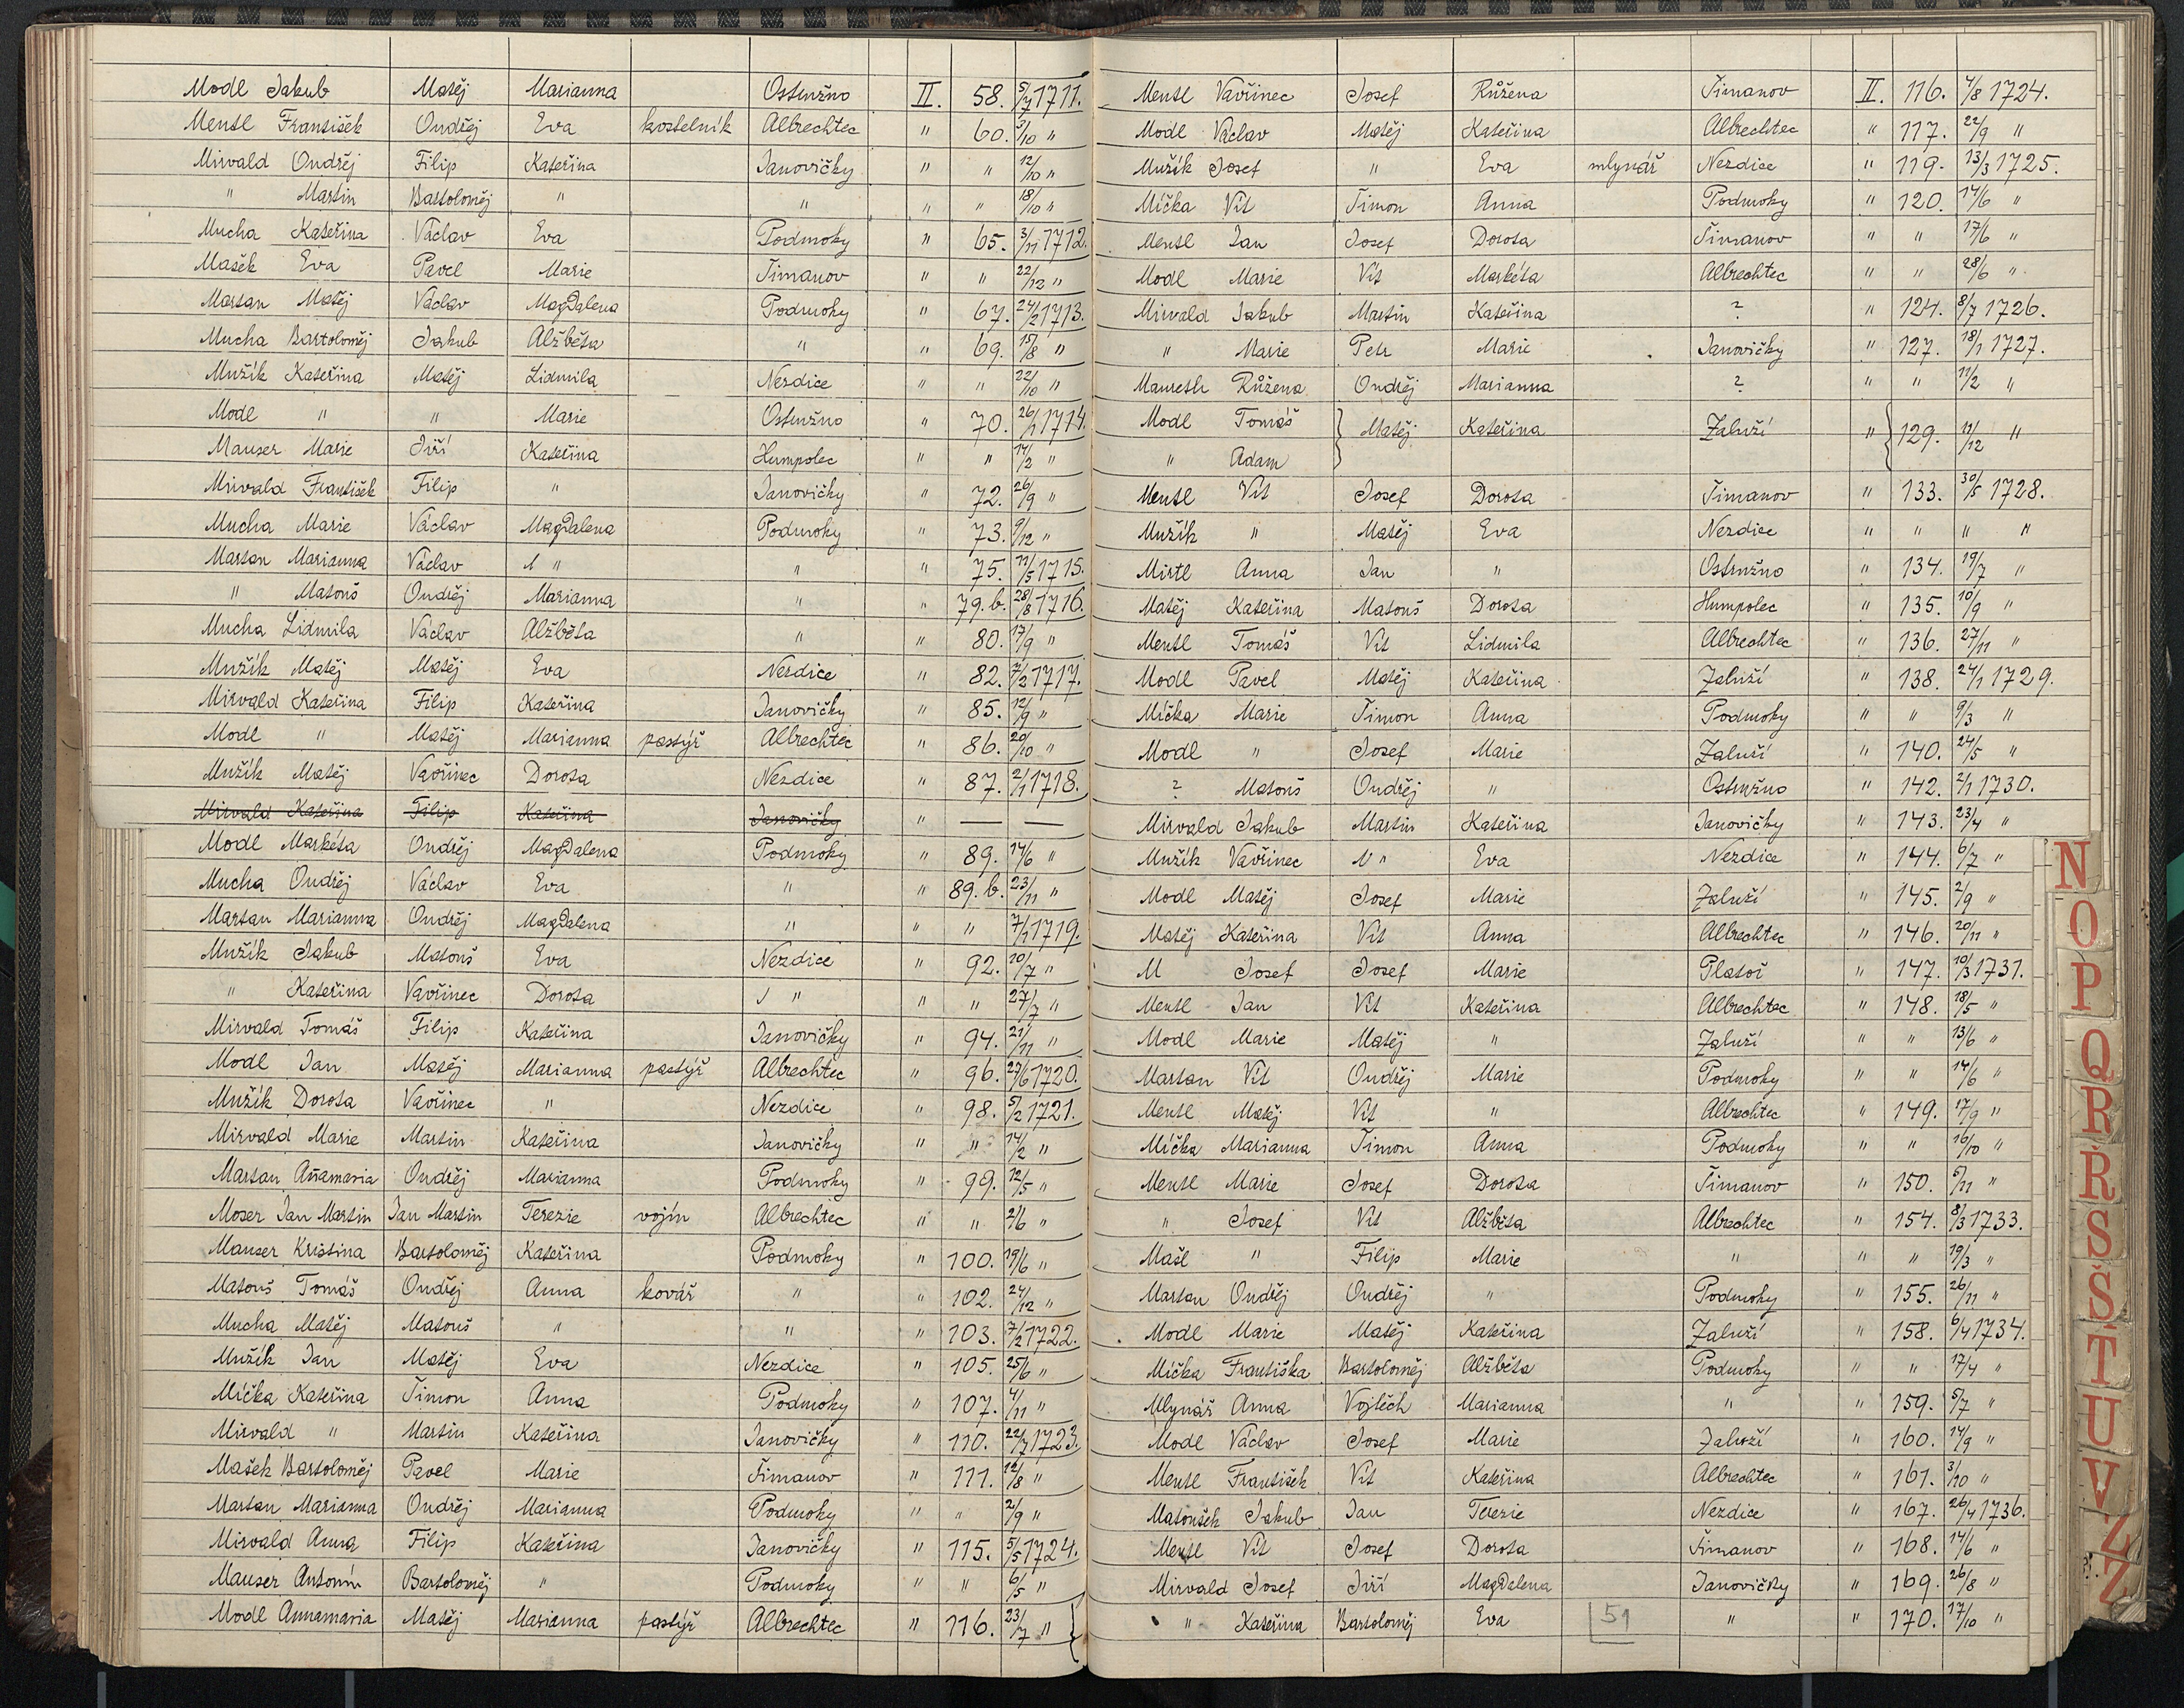 Modl Jakub Matěj Marianna Ostružno II. 58. 5/7 1711.
Mentl František Ondřej Eva kostelník Albrechtec " 60. 5/10 "
Mirvald Ondřej Filip Kateřina Janovičky " " 12/10 "
" Martin Bartoloměj " " " " 18/10 "
Mucha Kateřina Václav Eva Podmoky " 65. 3/11 1712.
Mašek Eva Pavel Marie Šimanov " " 22/12 "
Martan Matěj Václav Magdalena Podmoky " 67. 24/2 1713.
Mucha Bartoloměj Jakub Alžběta " " 69. 15/8 "
Mužík Kateřina Matěj Lidmila Nezdice " " 22/10 "
Modl " " Marie Ostružno " 70. 26/1 1714.
Mauser Marie Jiří Kateřina Humpolec " " 14/2 "
Mirvald František Filip " Janovičky " 72. 26/9 "
Mucha Marie Václav Magdalena Podmoky " 73. 9/12 "
Martan Marianna Václav " " " 75. 11/5 1715.
" Matouš Ondřej Marianna " " 79.b. 28/8 1716.
Mucha Lidmila Václav Alžběta " " 80. 17/9 "
Mužík Matěj Matěj Eva Nezdice " 82. 7/2 1717.
Mirvald Kateřina Filip Kateřina Janovičky " 85. 12/9 "
Modl " Matěj Marianna pastýř Albrechtec " 86. 20/10 "
Mužík Matěj Vavřinec Dorota Nezdice " 87. 2/1 1718.
Mirvald Kateřina Filip Kateřina Janovičky " — —
Modl Markéta Ondřej Magdalena Podmoky " 89. 14/6 "
Mucha Ondřej Václav Eva " " 89.b. 23/11 "
Martan Marianna Ondřej Magdalena " " " 7/1 1719.
Mužík Jakub Matouš Eva Nezdice " 92. 10/7 "
" Kateřina Vavřinec Dorota " " " 27/7 "
Mirvald Tomáš Filip Kateřina Janovičky " 94. 21/11 "
Modl Jan Matěj Marianna pastýř Albrechtec " 96. 27/6 1720.
Mužík Dorota Vavřinec " Nezdice " 98. 5/2 1721.
Mirvald Marie Martin Kateřina Janovičky " " 14/2 "
Martan Añamaria Ondřej Marianna Podmoky " 99. 12/5 "
Moser Jan Martin Jan Martin Terezie vojín Albrechtec " " 2/6 "
Mauser Kristina Bartoloměj Kateřina Podmoky " 100. 19/6 "
Matouš Tomáš Ondřej Anna kovář " " 102. 24/12 "
Mucha Matěj Matouš " " " 103. 7/2 1722.
Mužík Jan Matěj Eva Nezdice " 105. 25/6 "
Míčka Kateřina Šimon Anna Podmoky " 107. 4/11 "
Mirvald " Martin Kateřina Janovičky " 110. 22/7 1723.
Mašek Bartoloměj Pavel Marie Šimanov " 111. 12/8 "
Martan Marianna Ondřej Marianna Podmoky " " 2/9 "
Mirvald Anna Filip Kateřina Janovičky " 115. 5/5 1724.
Mauser Antonín Bartoloměj " Podmoky " " 6/5 "
Modl Annamaria Matěj Marianna pastýř Albrechtec " 116. 23/7 "
Mentl Vavřinec Josef Růžena Šimanov II. 116. 4/8 1724.
Modl Václav Matěj Kateřina Albrechtec " 117. 22/9 "
Mužík Josef " Eva mlynář Nezdice " 119. 13/3 1725.
Míčka Vít Šimon Anna Podmoky " 120. 14/6 "
Mentl Jan Josef Dorota Šimanov " " 17/6 "
Modl Marie Vít Markéta Albrechtec " " 28/6 "
Mirvald Jakub Martin Kateřina ? " 124. 8/7 1726.
" Marie Petr Marie Janovičky " 127. 18/1 1727.
Růžena Ondřej Marianna ? " " 11/2 "
Modl Tomáš Matěj Kateřina Zaluží " 129. 11/12 "
" Adam
Mentl Vít Josef Dorota Šimanov " 133. 30/5 1728.
Mužík " Matěj Eva Nezdice " " " "
Mirtl Anna Jan " Ostružno " 134. 19/7 "
Matěj Kateřina Matouš Dorota Humpolec " 135. 10/9 "
Mentl Tomáš Vít Lidmila Albrechtec " 136. 27/11 "
Modl Pavel Matěj Kateřina Zaluží " 138. 24/1 1729.
Míčka Marie Šimon Anna Podmoky " " 9/3 "
Modl " Josef Marie Zaluží " 140. 24/5 "
? Matouš Ondřej " Ostružno " 142. 2/1 1730.
Mirvald Jakub Martin Kateřina Janovičky " 143. 23/4 "
Mužík Vavřinec " Eva Nezdice " 144. 6/7 "
Modl Matěj Josef Marie Zaluží " 145. 2/9 "
Matěj Kateřina Vít Anna Albrechtec " 146. 20/11 "
M Josef Josef Marie Platoř " 147. 10/3 1731.
Mentl Jan Vít Kateřina Albrechtec " 148. 18/5 "
Modl Marie Matěj " Zaluží " " 13/6 "
Martan Vít Ondřej Marie Podmoky " " 14/6 "
Mentl Matěj Vít " Albrechtec " 149. 17/9 "
Míčka Marianna Šimon Anna Podmoky " " 16/10 "
Mentl Marie Josef Dorota Šimanov " 150. 5/11 "
" Josef Vít Alžběta Albrechtec " 154. 8/3 1733.
Mašl " Filip Marie " " " 19/3 "
Martan Ondřej Ondřej " Podmoky " 155. 26/11 "
Modl Marie Matěj Kateřina Zaluží " 158. 6/4 1734.
Míčka Františka Bartoloměj Alžběta Podmoky " " 17/4 "
Mlynář Anna Vojtěch Marianna " " 159. 5/7 "
Modl Václav Josef Marie Zaluží " 160. 14/9 "
Mentl František Vít Kateřina Albrechtec " 161. 3/10 "
Matoušek Jakub Jan Terezie Nezdice " 167. 26/4 1736.
Mentl Vít Josef Dorota Šimanov " 168. 14/6 "
Mirvald Josef Jiří Magdalena Janovičky " 169. 26/8 "
" Kateřina Bartoloměj Eva 51 " " 170. 17/10 "
N
O
P
Q
R
Ř
S
Š
T
U
V
Z
Ž